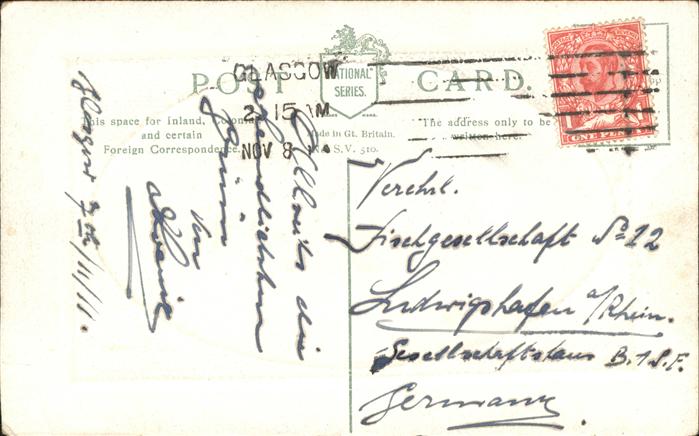 POST CARD.
"NATIONAL"
SERIES.
This space for Inland, Colonial
and certain
Foreign Correspondence.
Made in Gt. Britain.
S.V. 510.
The address only to be
written here.
GLASGOW
2 15 AM
NOV 8
ONE PENNY
Glasgow 7 /11/11.
Allseits die
freundlichsten
Grüsse
von
Verehrl.
Tischgesellschaft No 12
Ludwigshafen a/Rhein.
Gesellschaftshaus B.A.S.F.
Germany.